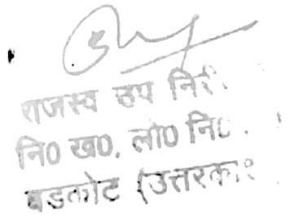 राजस्व उप निरी
नि0 ख0, लो0 नि0
बडकोट (उत्तरका